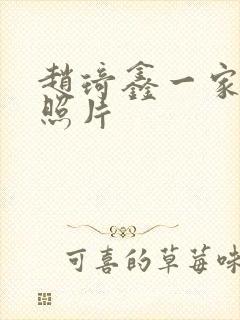 趙琦鑫一家
照片
可喜的草莓味